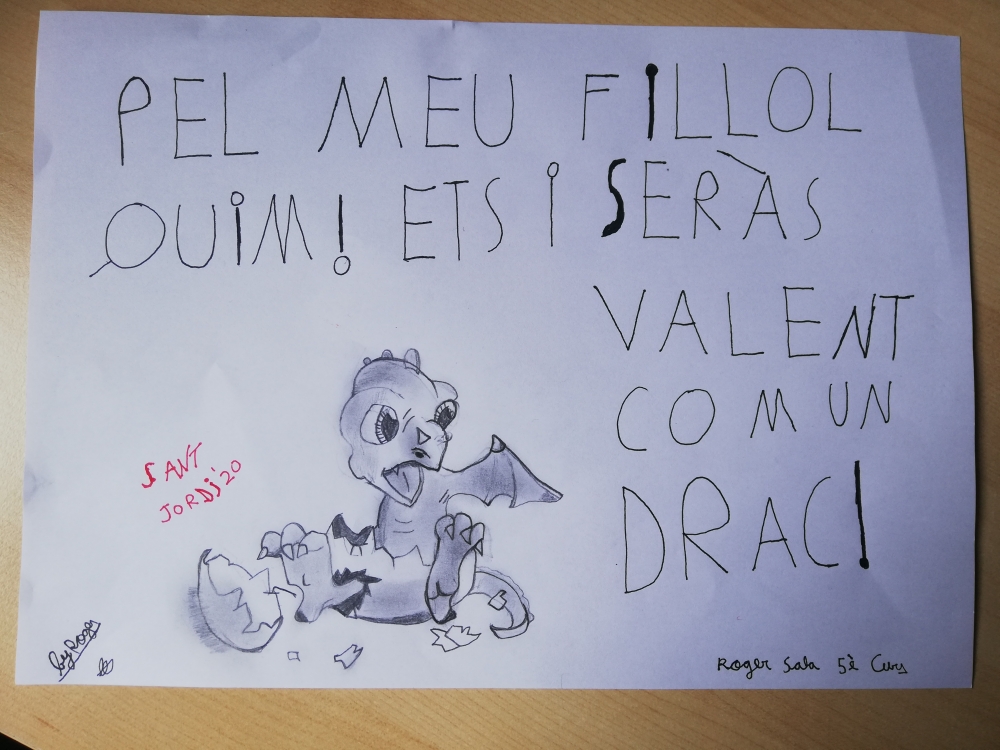 PEL MEU FILLOL
QUIM! ETS I SERÀS
VALENT
COM UN
DRAC!
SANT
JORDI '20
by Roger
Roger Sala 5è Curs